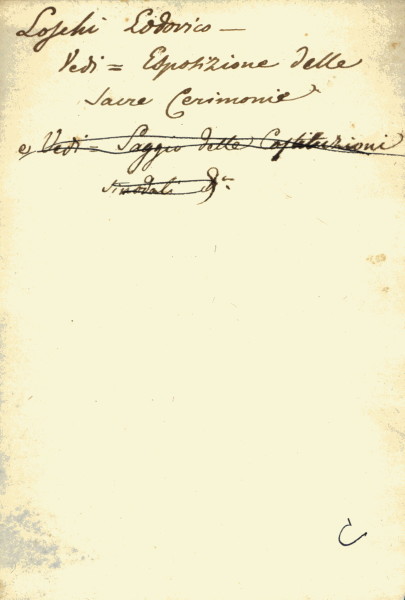 Loschi Lodovico —
Vedi = Esposizione delle
Sacre Cerimonie
e Vedi = Saggio delle Costituzioni
sinodali &c.
C